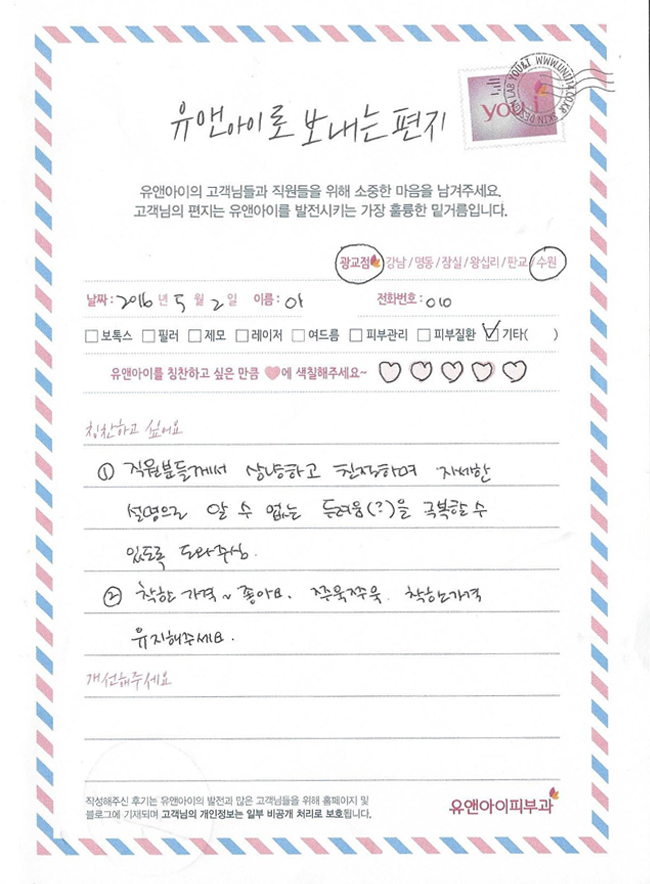 YOU&I WWW.UNI114.CO.KR SKIN DESIGN LAB
you i
유앤아이로 보내는 편지
유앤아이의 고객님들과 직원들을 위해 소중한 마음을 남겨주세요.
고객님의 편지는 유앤아이를 발전시키는 가장 훌륭한 밑거름입니다.
광교점 강남 / 명동 / 잠실 / 왕십리 / 판교 / 수원
날짜 : 2016 년 5 월 2 일 이름 : 이 전화번호 : 010
보톡스 필러 제모 레이저 여드름 피부관리 피부질환 기타( )
유앤아이를 칭찬하고 싶은 만큼 에 색칠해주세요~
칭찬하고 싶어요
① 직원분들께서 상냥하고 친절하며 자세한
설명으로 알 수 없는 두려움(?)을 극복할 수
있도록 도와주심.
② 착한 가격~ 좋아요. 쭈욱쭈욱 착한가격
유지해주세요.
개선해주세요
작성해주신 후기는 유앤아이의 발전과 많은 고객님들을 위해 홈페이지 및
블로그에 기재되며 고객님의 개인정보는 일부 비공개 처리로 보호됩니다.
유앤아이피부과